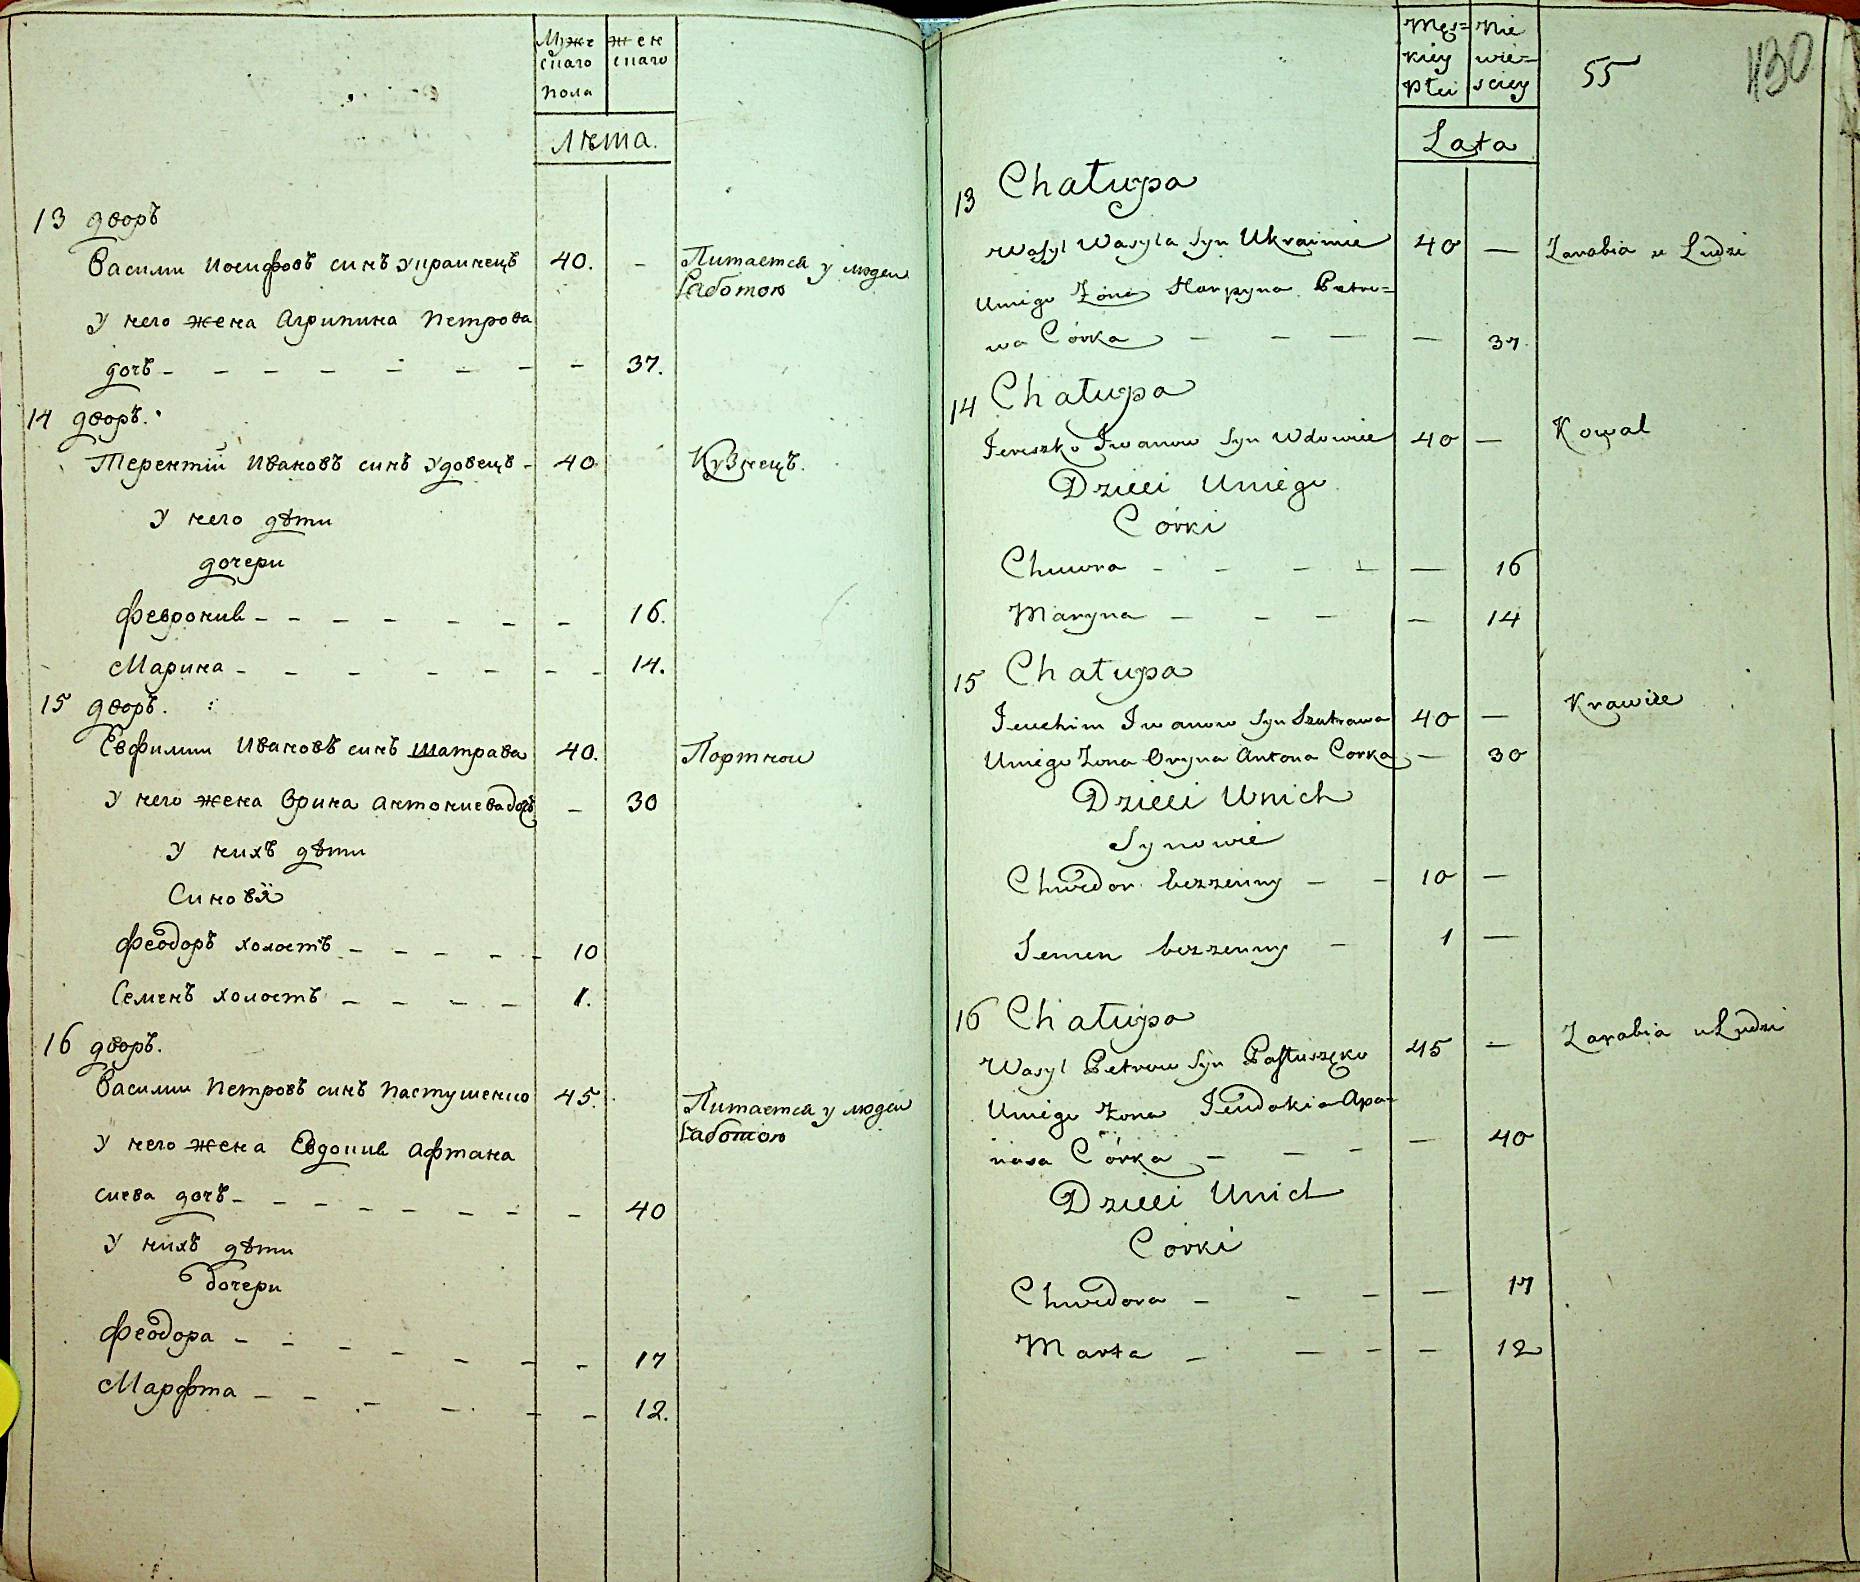 Мужескаго пола
Женскаго
Лѣта.
13 дворъ
Василии Иосифовъ синъ Украинецъ 40. –
Питается у людеи
Работою
У него жена Агрипина Петрова
дочъ – – – – – – – – 37.
14 дворъ.
Терентїй Ивановъ синъ Удовецъ – 40
Кузнецъ.
У него дѣти
дочери
Феврония – – – – – – – 16.
Марина – – – – – – – 14.
15 дворъ.
Евфимии Ивановъ синъ Шатрава 40.
Портнои
У него жена Ирина Антониева дочъ – 30
У нихъ дѣти
Синовя
Феодоръ холостъ – – – – – 10
Семенъ холостъ – – – – 1.
16 дворъ.
Василии Петровъ синъ Пастушенко 45.
Питается у людеи
Работою
У него жена Евдокия Афтана
сиева дочъ – – – – – – – – 40
У нихъ дѣти
дочери
Феодора – – – – – – – 17
Марфта – – – – – – 12.
Męs=
kiey
Płci
Nie
wie=
sciey
55
130
Lata
13 Chałupa
Wasyl Wasyla Syn Ukrainiec 40 — Zarabia u Ludzi
Uniego Żona Harpyna Petro=
wa Córka – – — — 37.
14 Chałupa
Tereszko Iwanow Syn Wdowiec 40 — Kowal
Dzieci Uniego
Córki
Chwwra – – – – — 16
Maryna – – – — 14
15 Chałupa
Jeuchim Iwanow Syn Szatrawa 40 — Krawiec
Uniego Zona Oryna Antona Corka – 30
Dzieci Unich
Synowie
Chwedor bezzenny – – 10 —
Semen bezzenny – 1 —
16 Chałupa
Wasyl Petrow Syn Pastuszęko 45 — Zarabia u Ludzi
Uniego Zona Jeudokia Apa=
nasa Córka – – – — 40
Dzieci Unich
Corki
Chwedora – – – — 17
Marta – — – — 12